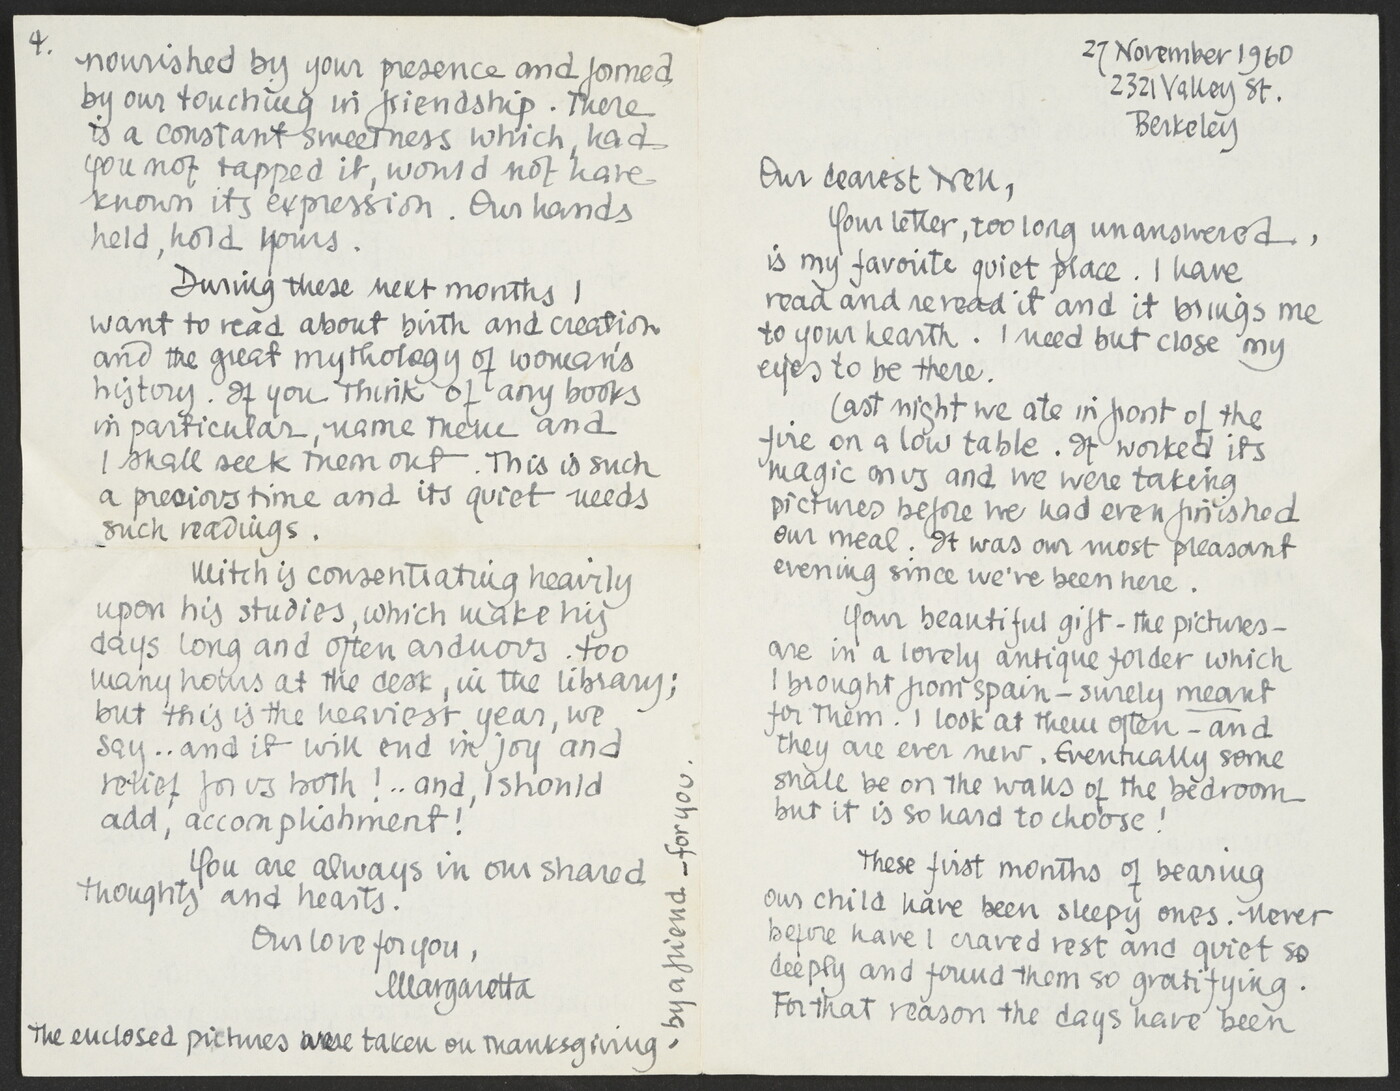 27 November 1960
2321 Valley St.
Berkeley
Our dearest Nell,
Your letter, too long unanswered,
is my favorite quiet place. I have
read and reread it and it brings me
to your hearth. I need but close my
eyes to be there.
Last night we ate in front of the
fire on a low table. It worked its
magic on us and we were taking
pictures before we had even finished
our meal. It was our most pleasant
evening since we've been here.
Your beautiful gift - the pictures -
are in a lovely antique folder which
I brought from Spain - surely meant
for them. I look at them often - and
they are ever new. Eventually some
shall be on the walls of the bedroom
but it is so hard to choose!
These first months of bearing
our child have been sleepy ones. Never
before have I craved rest and quiet so
deeply and found them so gratifying.
For that reason the days have been
4.
nourished by your presence and formed
by our touching in friendship. There
is a constant sweetness which, had
you not tapped it, would not have
known its expression. Our hands
held, hold yours.
During these next months I
want to read about birth and creation
and the great mythology of woman's
history. If you think of any books
in particular, name them and
I shall seek them out. This is such
a precious time and its quiet needs
such readings.
Mitch is consentrating heavily
upon his studies, which make his
days long and often arduous. Too
many hours at the desk, in the library;
but this is the heaviest year, we
say.. and it will end in joy and
relief for us both!.. and, I should
add, accomplishment!
You are always in our shared
thoughts and hearts.
Our love for you,
Margaretta
The enclosed pictures were taken on Thanksgiving.
by a friend - for you.